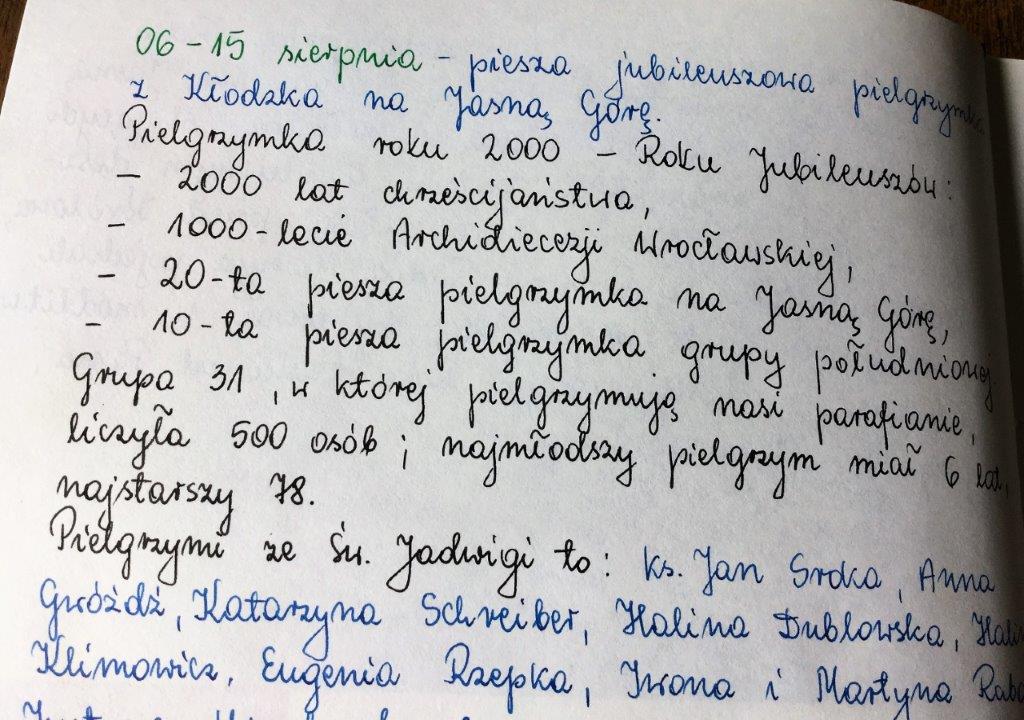 06-15 sierpnia - piesza jubileuszowa pielgrzymka
z Kłodzka na Jasną Górę.
Pielgrzymka roku 2000 - Roku Jubileuszów:
- 2000 lat chrześcijaństwa,
- 1000-lecie Archidiecezji Wrocławskiej,
- 20-ta piesza pielgrzymka na Jasną Górę,
- 10-ta piesza pielgrzymka grupy południowej.
Grupa 31, w której pielgrzymują nasi parafianie,
liczyła 500 osób; najmłodszy pielgrzym miał 6 lat,
najstarszy 78.
Pielgrzymi ze Św. Jadwigi to: ks. Jan Srdka, Anna
Gwóźdź, Katarzyna Schreiber, Halina Dublowska,
Klimowicz, Eugenia Rzepka, Iwona i Martyna